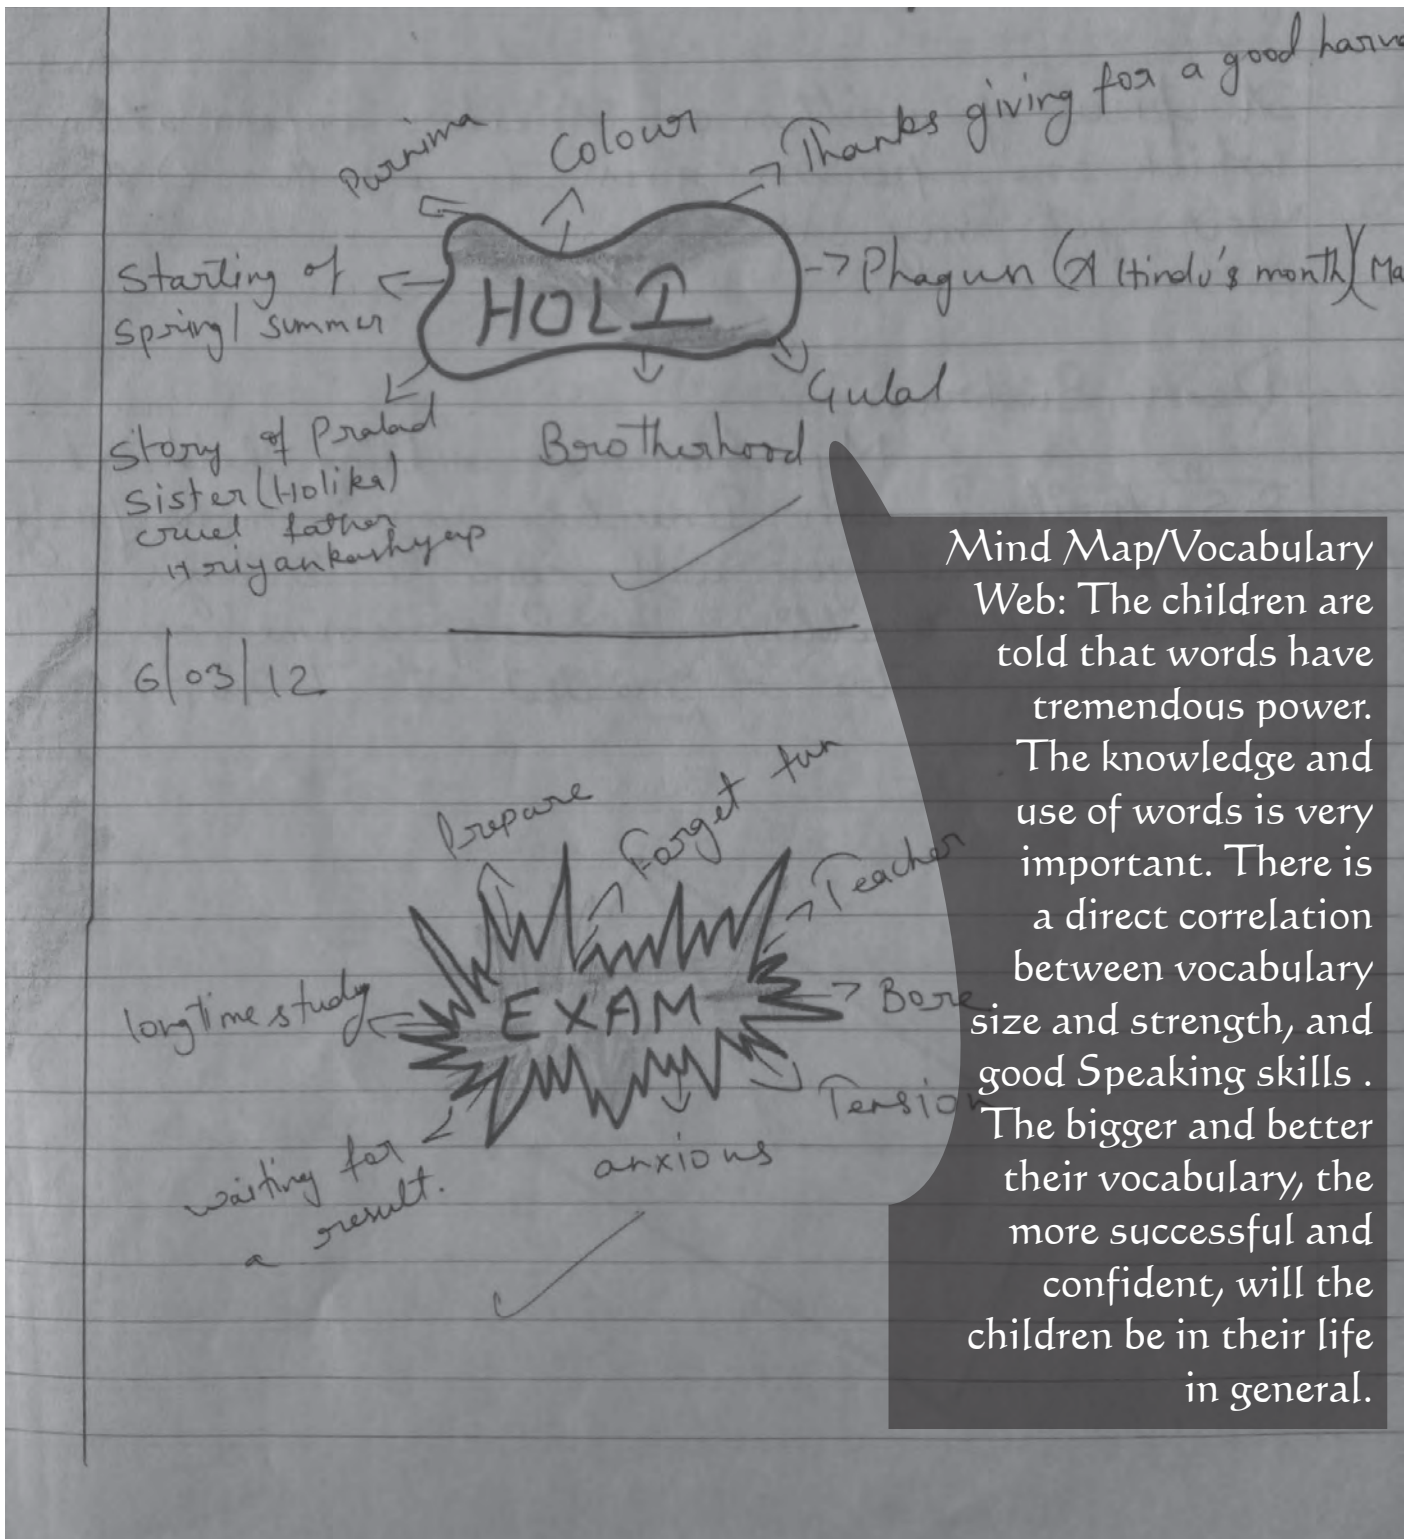 Purnima
Colour
Thanks giving for a good
Starting of
spring/ summer
HOLI
Phagun (A Hindu's month)
Gulal
Brotherhood
Story of Pralad
Sister (Holika)
cruel father
Hriyankashyap
6/03/12
Prepare
Forget fun
Teacher
long time study
EXAM
Bore
Tension
anxious
waiting for
a result.
Mind Map/Vocabulary
Web: The children are
told that words have
tremendous power.
The knowledge and
use of words is very
important. There is
a direct correlation
between vocabulary
size and strength, and
good Speaking skills .
The bigger and better
their vocabulary, the
more successful and
confident, will the
children be in their life
in general.